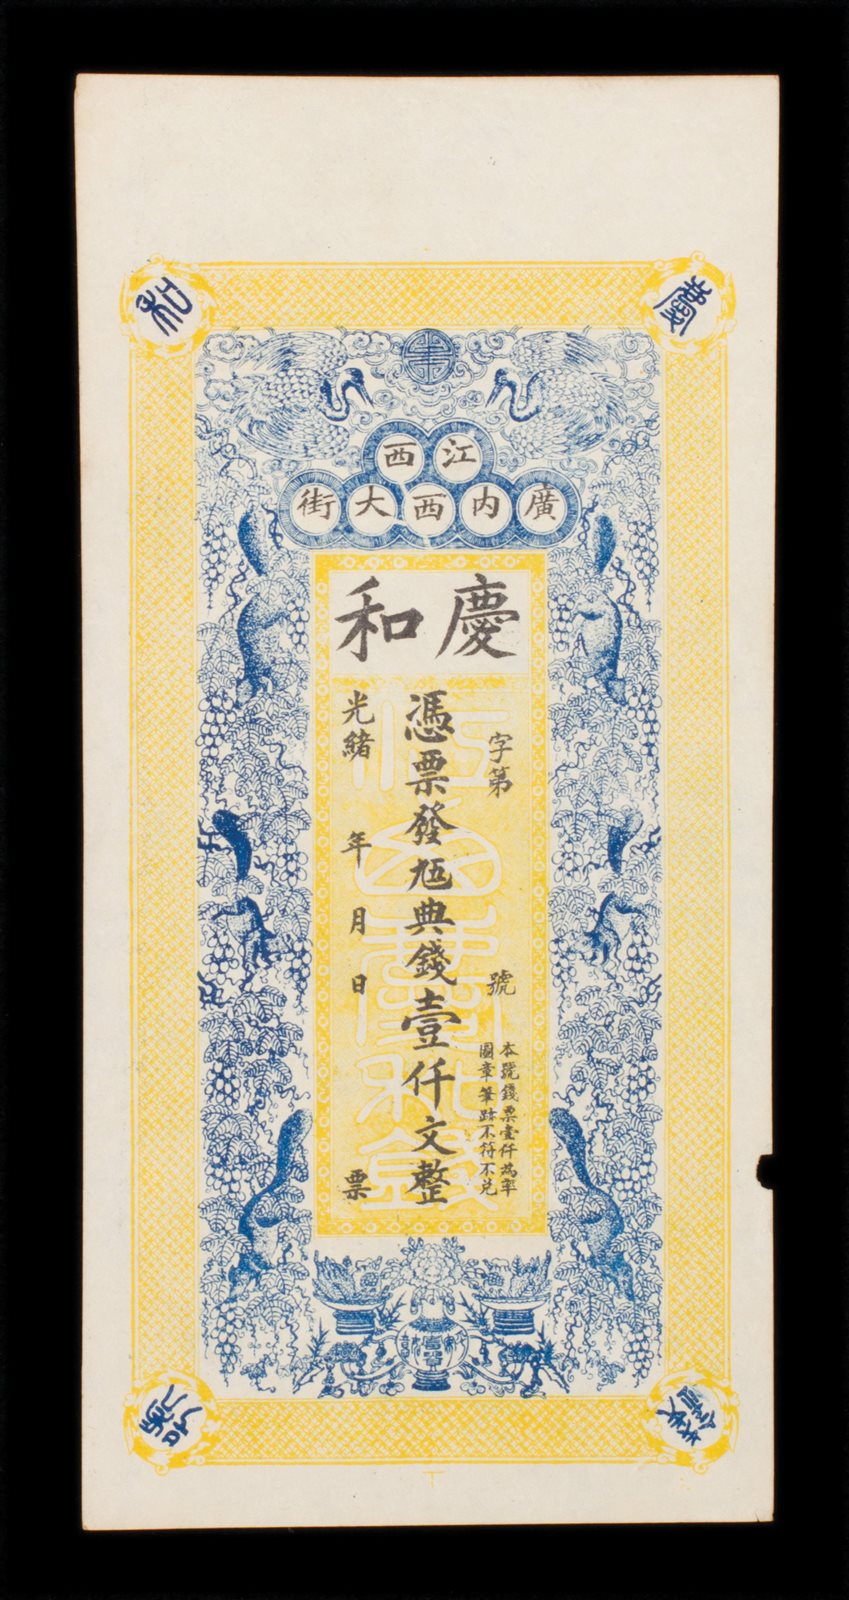 慶和
江西
廣內西大街
慶和
字第
號
本號錢票壹仟為率
圖章筆跡不符不兌
憑票發尪典錢壹仟文整
光緒
年
月
日
票